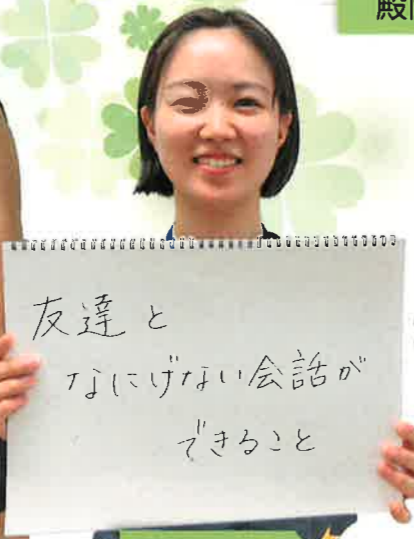 友達と
なにげない会話が
できること